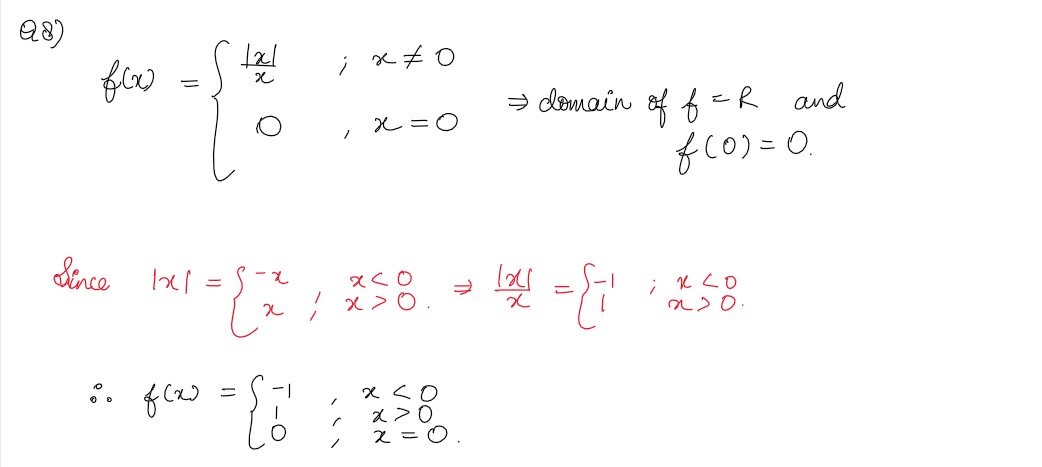 Q8)
f(x) = { |x|/x ; x ≠ 0
0 , x = 0
⇒ domain of f = R and
f(0) = 0.
Since |x| = { -x , x < 0 ⇒ |x|/x = { -1 ; x < 0
x ; x > 0. 1 x > 0.
∴ f(x) = { -1 , x < 0
1 ; x > 0
0 ; x = 0.